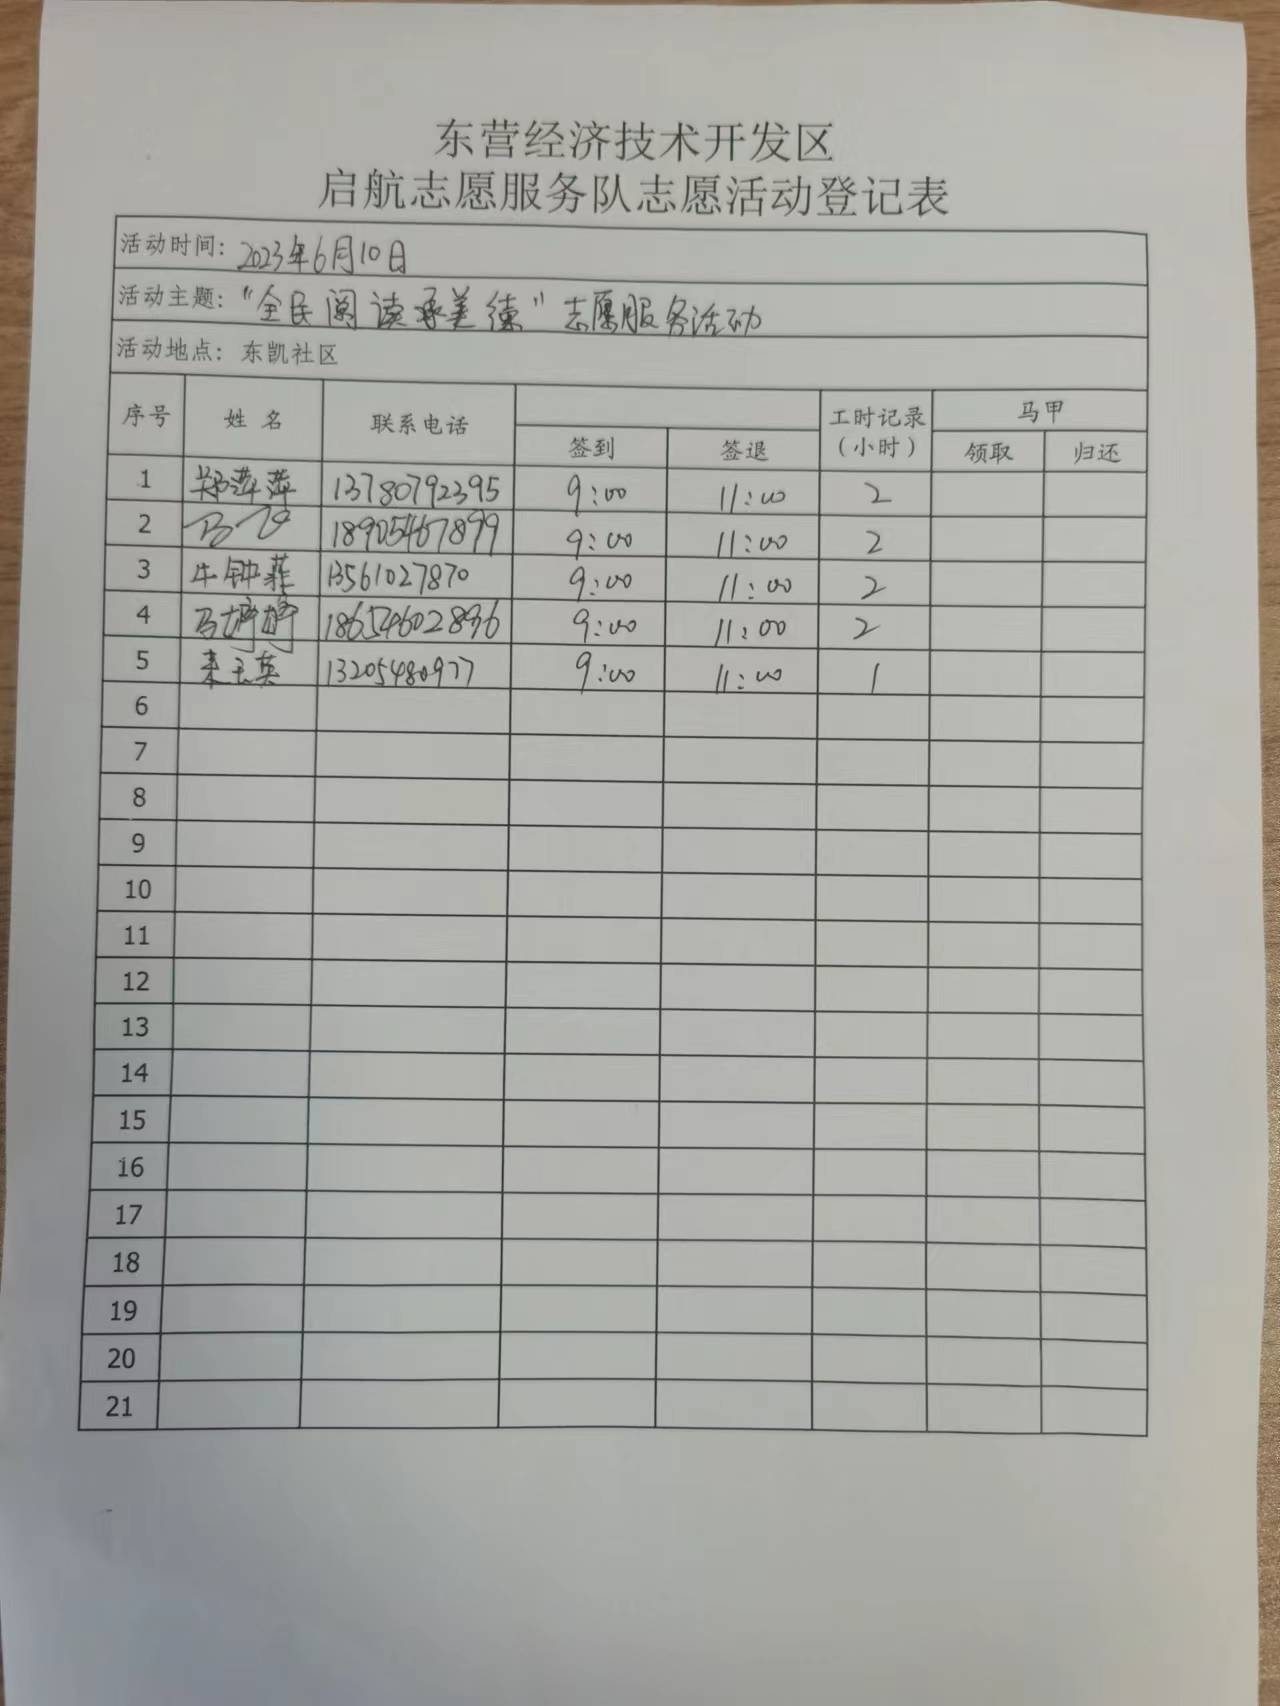 东营经济技术开发区
启航志愿服务队志愿活动登记表
活动时间：2023年6月10日
活动主题："全民阅读承美德"志愿服务活动
活动地点：东凯社区
序号 姓名 联系电话 签到 签退 工时记录（小时） 马甲 领取 归还
1 郑萍萍 13780792395 9:00 11:00 2
2 马 18905467899 9:00 11:00 2
3 牛钟菲 13561027870 9:00 11:00 2
4 马婷婷 18654602896 9:00 11:00 2
5 来玉英 13205480977 9:00 11:00 1
6
7
8
9
10
11
12
13
14
15
16
17
18
19
20
21